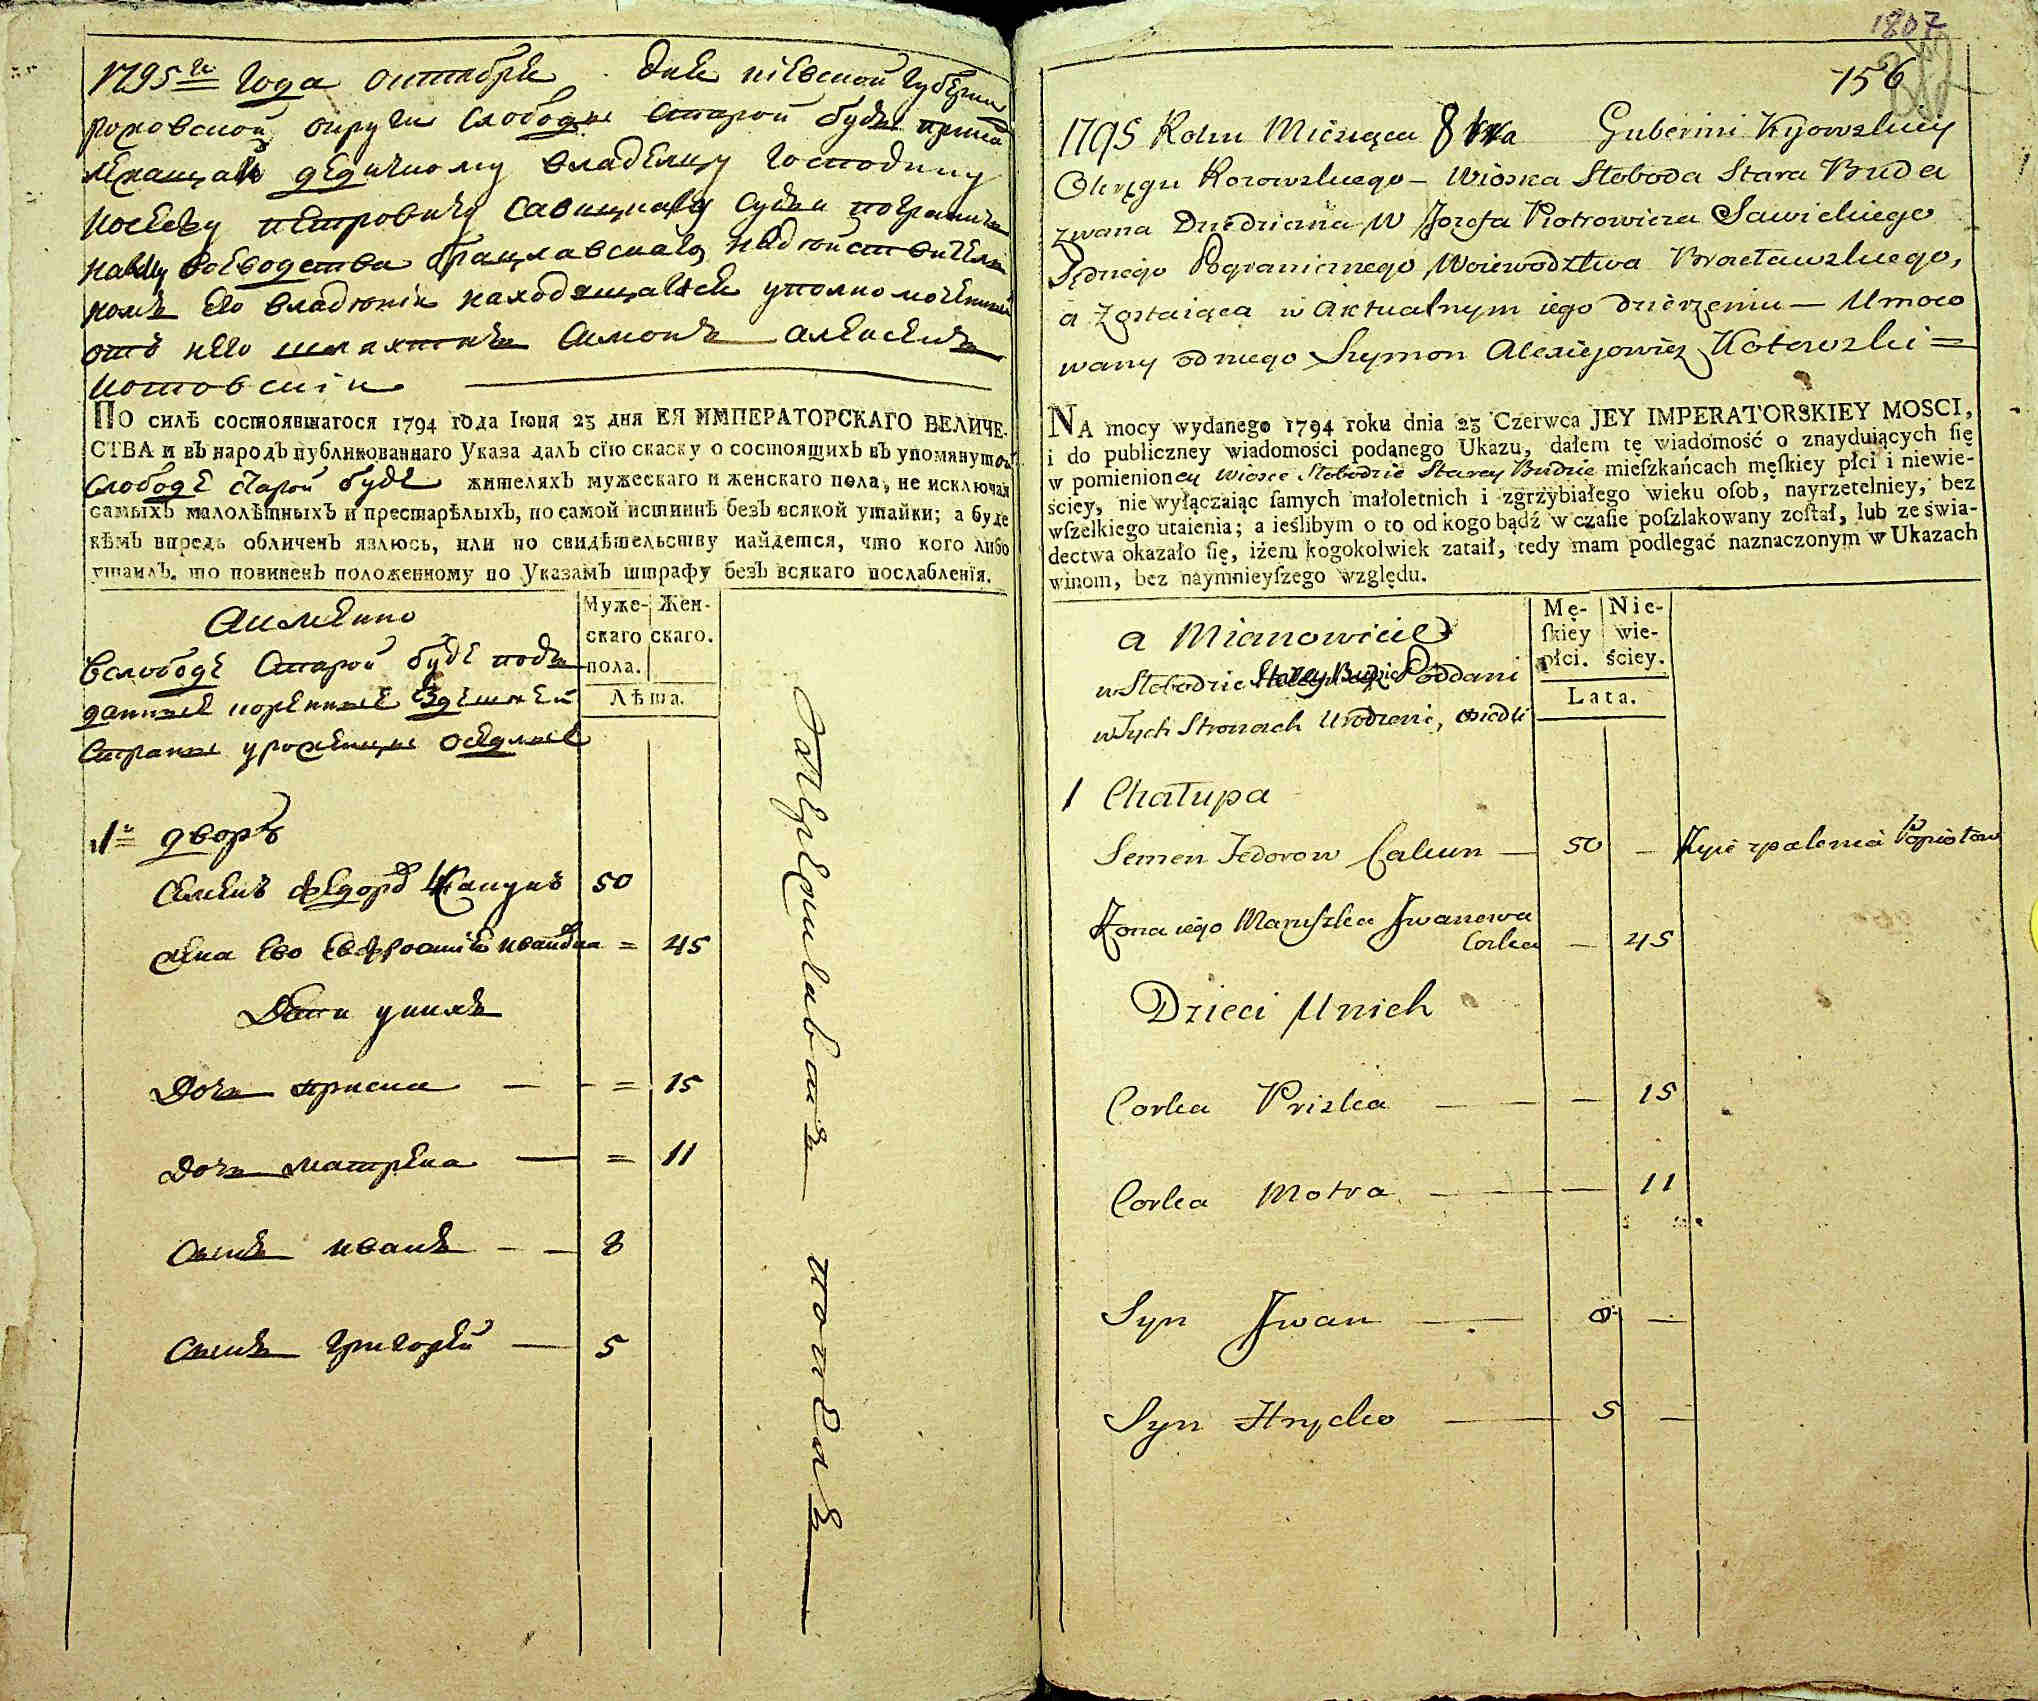 1795го Года Октября Дня Кіевской Губернии
роховской округи Слободы Старой буды прина
лежащаЙ дедичному владелцу Господину
Иосефу Петровичу Савицкому Судьи погранич
ному воеводства брацлавскаго
ном его владении находящаяся уполномоченный
отъ него шляхтичъ Симонъ Алексеевъ
Котовскіи
ПО силѣ состоявшагося 1794 года Іюня 23 дня ЕЯ ИМПЕРАТОРСКАГО ВЕЛИЧЕ-
СТВА и въ народъ публикованнаго Указа далъ сію скаску о состоящихъ въ упомянутой
Слободе Старой буде жителяхъ мужескаго и женскаго пола, не исключая
самыхъ малолѣтныхъ и престарѣлыхъ, по самой истиннѣ безъ всякой утайки; а буде
кѣмъ впредь обличенъ явлюсь, или по свидѣтельству найдется, что кого либо
утаилъ, то повиненъ положенному по Указамъ штрафу безъ всякаго послабленія.
Аимеино
Муже- Жен-
скаго скаго.
пола.
Лѣта.
Вслободе Старой буде подъ
данные коренные Здешней
Страны уроженцы оседлые
1й дворъ
Семенъ Федоровъ Кацунъ 50
жена Ево Евфросинія Иванова = 45
Дети у них
Дочь приска — = 15
Дочь матрена — = 11
Сынъ иванъ — 8
Сынъ Григорей — 5
1807
156
1795 Roku Miesiąca 8bra Gubernii Kijowskiey
Okręgu Korowskiego — Wioska Słoboda Stara Buda
zwana Dziedziczna W Jozefa Piotrowicza Sawickiego
Sędziego Pogranicznego Woiewodztwa Bracławskiego,
a Zostaiąca w Aktualnym iego dzierzeniu — Umoco
wany od niego Szymon Alexiejowicz Kotowski =
NA mocy wydanego 1794 roku dnia 23 Czerwca JEY IMPERATORSKIEY MOSCI,
i do publiczney wiadomości podanego Ukazu, dałem tę wiadomość o znayduiących ſię
w pomienioney Wiosce Słobodzie Starey Budzie mieſzkańcach męſkiey płci i niewie-
ściey, nie wyłączaiąc ſamych małoletnich i zgrzybiałego wieku oſob, nayrzetelniey, bez
wſzelkiego utaienia; a ieślibym o to od kogo bądź w czaſie poſzlakowany zoſtał, lub ze świa-
dectwa okazało ſię, iżem kogokolwiek zataił, tedy mam podlegać naznaczonym w Ukazach
winom, bez naymnieyſzego względu.
a Mianowicie
Mę- Nie-
ſkiey wie-
płci. ściey.
Lata.
w Słobodzie Starey Budzie Poddani
w Tych Stronach Urodzeni, osiedli
1 Chałupa
Semen Fedorow Cakun — 50 —
Żona iego Maruszka Jwanowa
Corka — 45
Dzieci U nich
Corka Priska — — — 15
Corka Motra — — — 11
Syn Jwan — 8 —
Syn Hrycko — 5 —